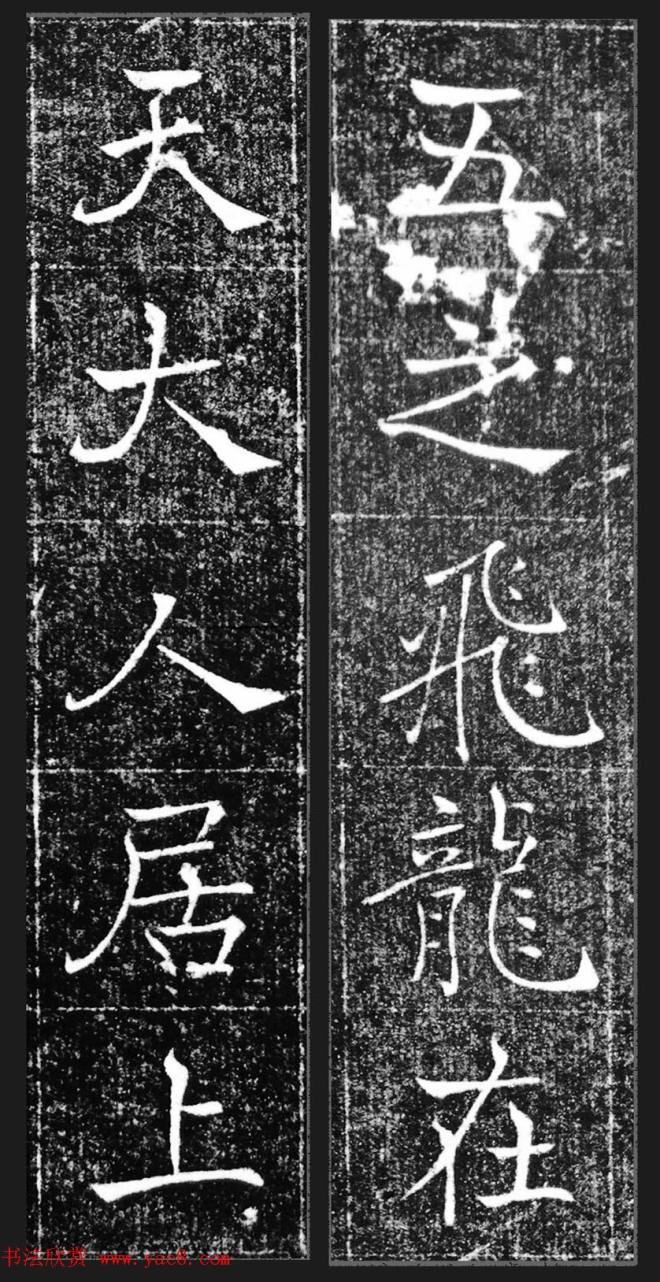 五之飛龍在
天大人居上
书法欣赏 www.yac8.com